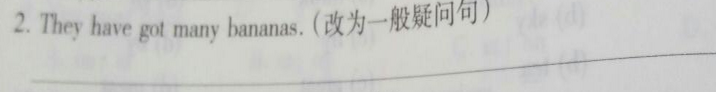 2. They have got many bananas. (改为一般疑问句)